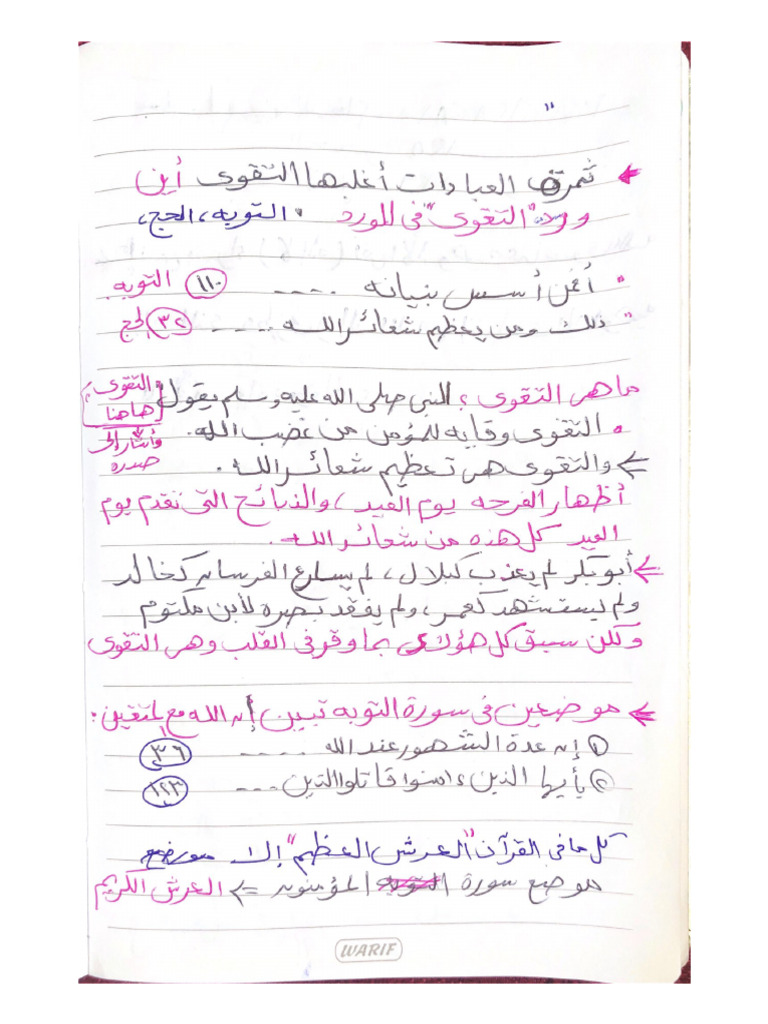 "
← ثمرة العبادات أغلبها التقوى أين
ورد "التقوى" في الورد . التوبه، الحج،
" أفمن أسس بنيانه ---- (١١٠) التوبه
" ذلك ومن يعظم شعائر الله ---- (٣٢) الحج
ما هى التقوى؟ النبي صلى الله عليه وسلم يقول "التقوى
هاهنا
وأشار إلى
صدره
• التقوى وقايه للمؤمن من غضب الله.
← والتقوى هى تعظيم شعائر الله.
أظهار الفرحه يوم العيد، والذبائح التى نقدم يوم
العيد كل هذه من شعائر الله.
← أبو بكر لم يعذب كبلال، لم يسارع الفرسان كخالد
ولم يستشهد كعمر، ولم يفقد بصره لأبن مكتوم
ولكن سبق كل هؤلاء بما وقر فى القلب وهى التقوى
← موضعين فى سورة التوبه تبين إن الله مع المتقين:
① إن عدة الشهور عند الله ---- (٣٦)
② يأيها الذين ءامنوا قاتلوا الذين --- (١٢٣)
كل ما فى القرآن "العرش العظيم" إلا موضع
موضع سورة المؤمنون => العرش الكريم
WARIF